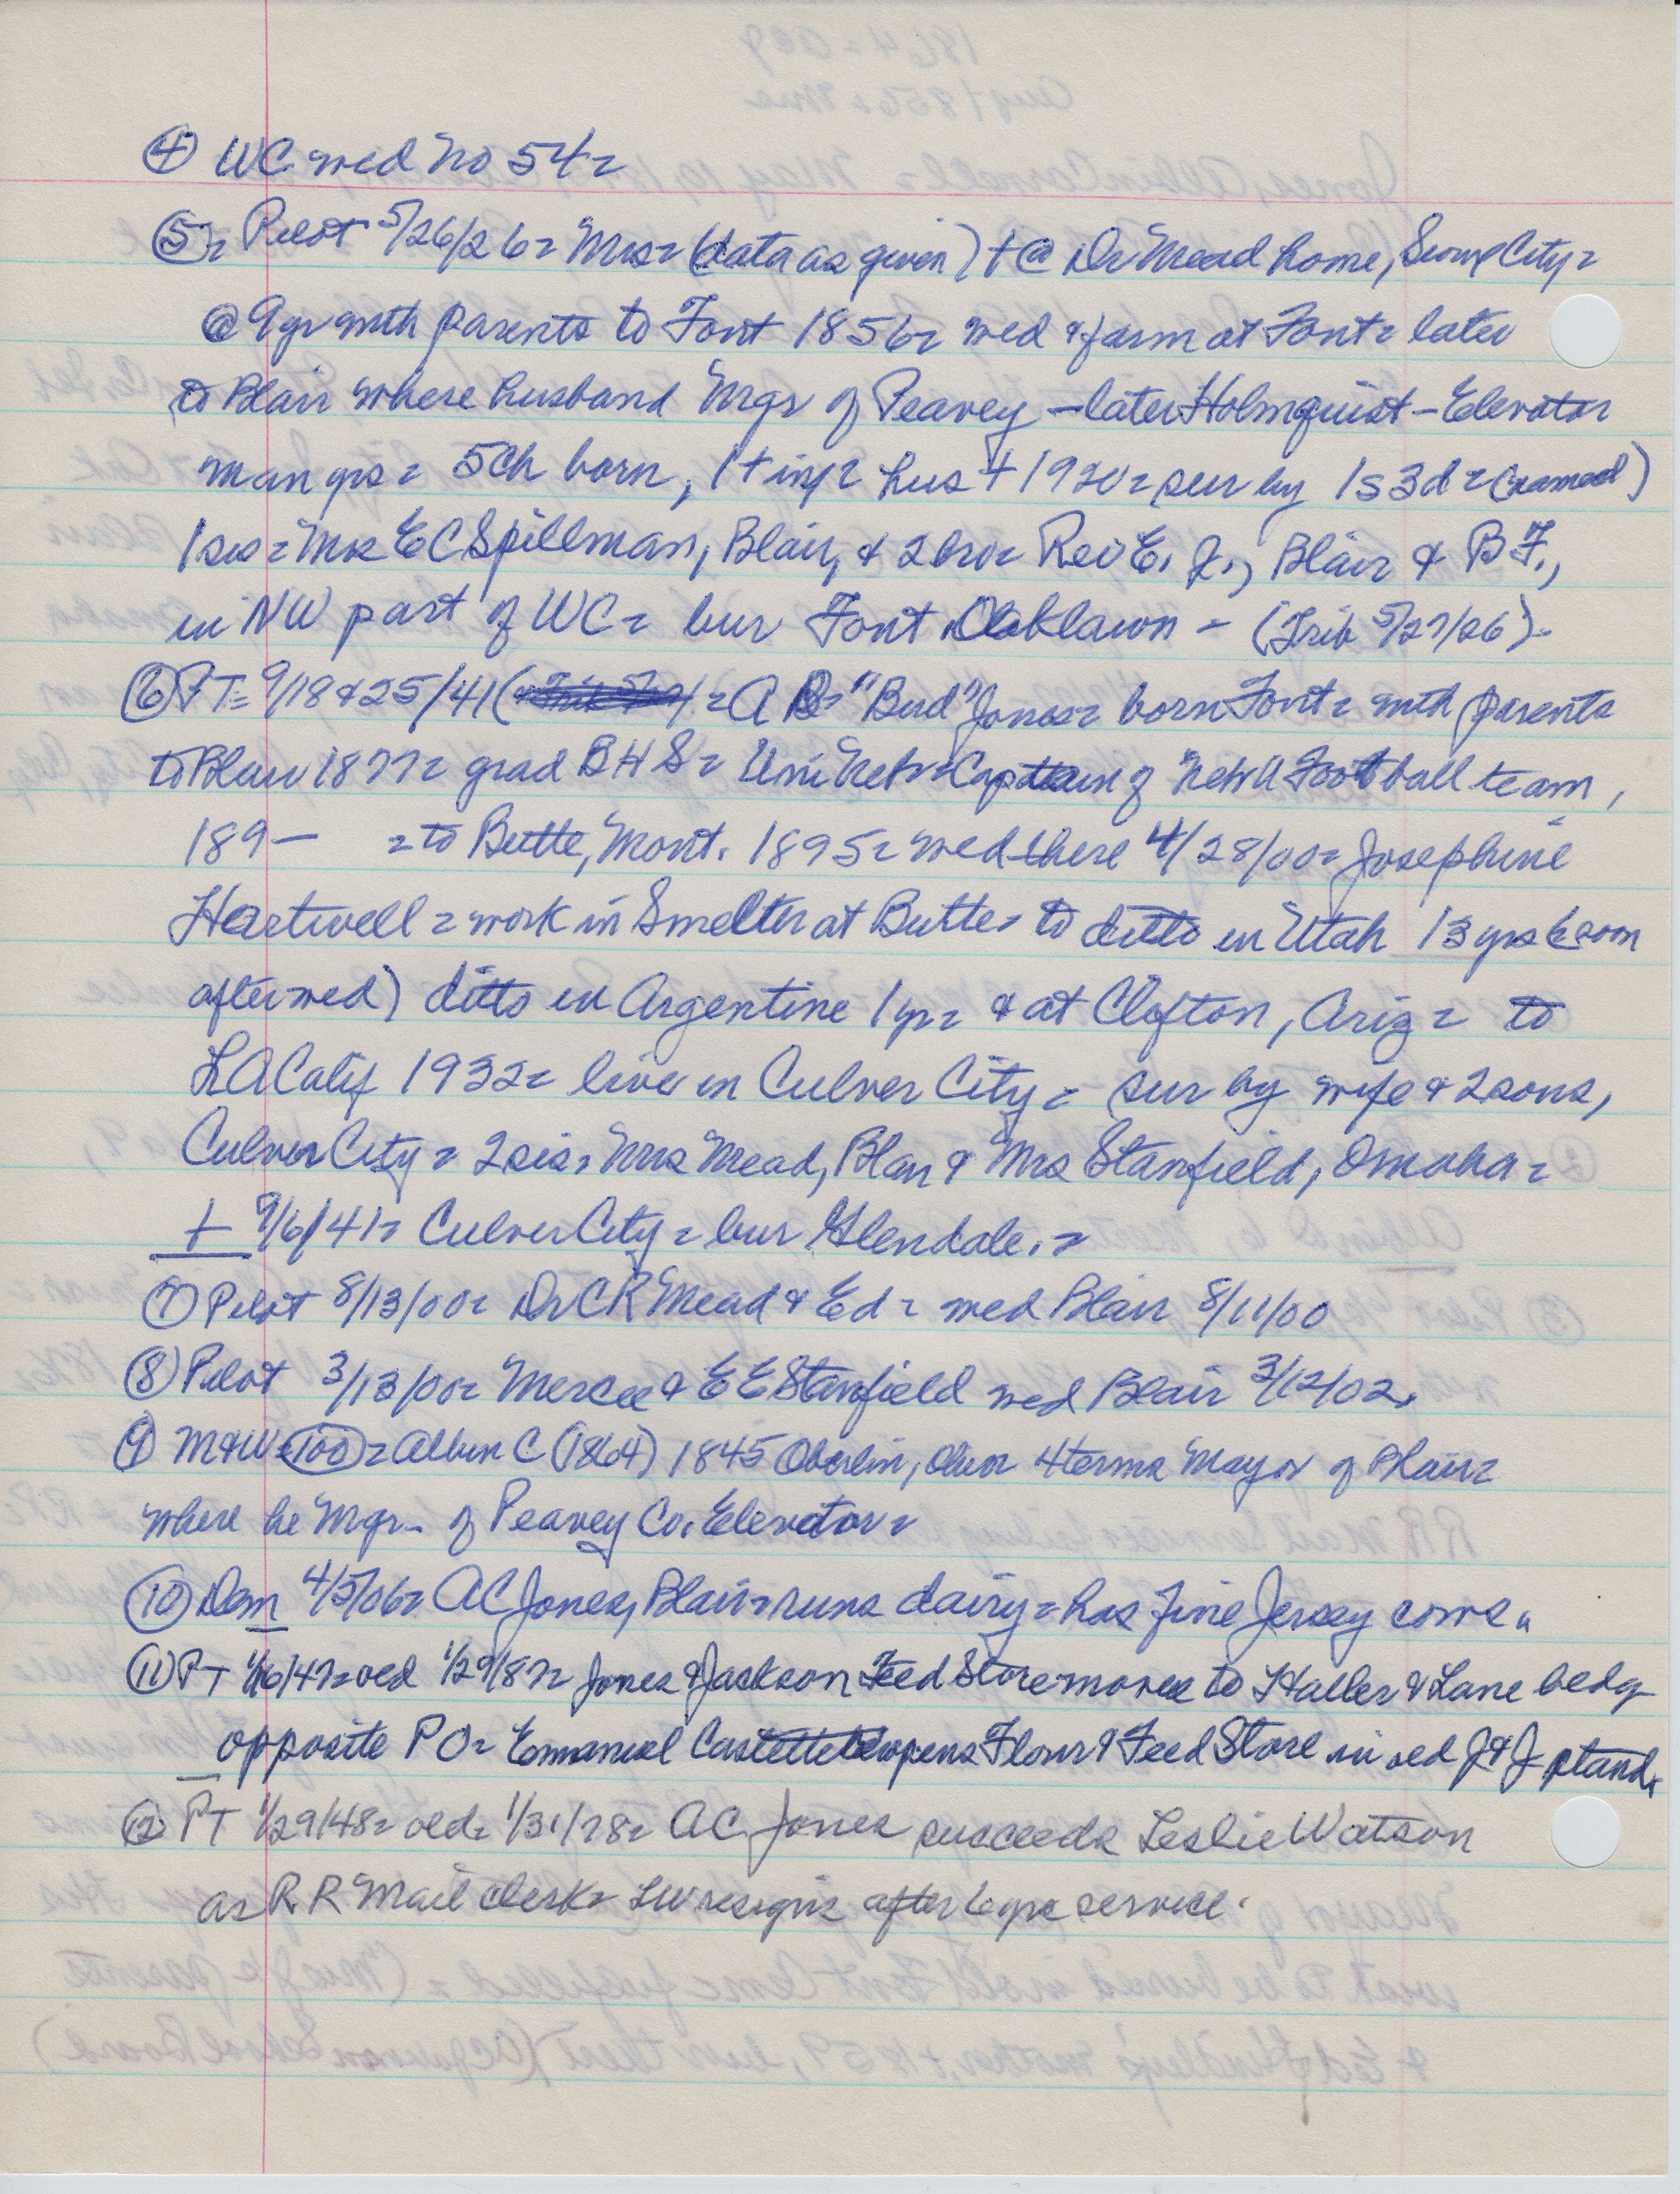 ④ WC wed No 54=
⑤= Pilot 5/26/26= Mrs= (data as given) + @ Dr Mead home, Sioux City=
@ 9 yr with parents to Font 1856= wed & farm at Font= later
to Blair where husband Mgr of Peavey – later Holmquist – Elevator
man yrs= 5 ch born, 1 + inf= hus + 1920= sur by 1s 3d= (named)
1 sis= Mrs E C Spillman, Blair, & 2 bro= Rev E. J., Blair & B F.,
in NW part of WC= bur Font Oaklawn – (Trib 5/27/26).
⑥ PT= 9/18 & 25/41 ( ) = A D= "Bud" Jones= born Font= with parents
to Blair 1877= grad B H S= Uni Neb= Captain of Neb U Football team,
189– = to Butte, Mont. 1895= wed there 4/28/00= Josephine
Hartwell= work in Smelter at Butte= to ditto in Utah 13 yrs (soon
after wed) ditto in Argentine 1 yr= & at Clifton, Ariz= to
LA Calif 1932= live in Culver City= sur by wife & 2 sons,
Culver City= 2 sis= Mrs Mead, Blair & Mrs Stanfield, Omaha=
+ 9/6/41= Culver City= bur Glendale. =
⑦ Pilot 8/13/00= Dr C R Mead & Ed= wed Blair 8/11/00
⑧ Pilot 3/13/00= Mercee & E E Stanfield wed Blair 3/12/02.
⑨ M&W (100) = Albin C (1864) 1845 Oberlin, Ohio 4 terms Mayor of Blair=
where he Mgr– of Peavey Co. Elevator=
⑩ Dem 4/5/06= A C Jones, Blair= runs dairy= has fine Jersey cows.
⑪ PT 1/16/47= old 1/29/87= Jones & Jackson Feed Store moves to Haller & Lane bldg
opposite PO= Emanuel Castetter opens Flour & Feed Store in old J & J stand.
⑫ PT 1/29/48= old= 1/31/78= AC Jones succeeds Leslie Watson
as R R Mail clerk= LW resigns after 6 yrs service.